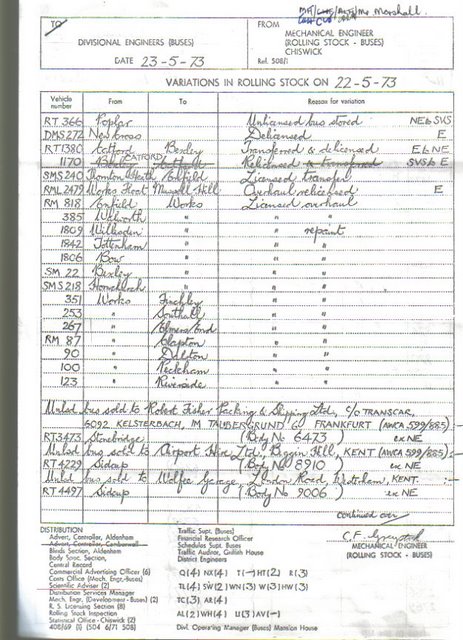 Mr Marshall.
TO
FROM
DIVISIONAL ENGINEERS (BUSES)
MECHANICAL ENGINEER
(ROLLING STOCK - BUSES)
CHISWICK
DATE 23-5-73
Ref. 508/1
VARIATIONS IN ROLLING STOCK ON 22-5-73
Vehicle number From To Reason for variation
RT 366 Poplar Unlicensed bus stored NE to SVS
DMS 272 New Cross Delicensed E
RT 1380 Catford Bexley Transferred & delicensed E to NE
1170 CATFORD Relicensed & transferred SVS to E
SMS 240 Thornton Heath Enfield Licensed transfer
RML 2479 Works Float Muswell Hill Overhaul relicensed E
RM 818 Enfield Works Licensed overhaul
385 Walworth " " "
1809 Willesden " " repaint
1842 Tottenham " " "
1806 Bow " " "
SM 22 Bexley " " "
SMS 218 Hornchurch " " "
351 Works Finchley " "
253 " Southall " "
267 " Elmers End " "
RM 87 " Clapton " "
90 " Dalston " "
100 " Peckham " "
123 " Riverside " "
Unlsd bus sold to Robert Fisher Packing & Shipping Ltd, c/o TRANSCAR,
6092 KELSTERBACH, IM TAUBERGRUND 6, FRANKFURT (AWCA 599/885) -
RT 3473 Stonebridge (Body No 6473 ) ex NE
Unlsd bus sold to Airport Hire Ltd, Biggin Hill, KENT (AWCA 599/885) -
RT 4229 Sidcup (Body No 8910 ) ex NE
Unlsd bus sold to Wolfee Garage, London Road, Westerham, KENT. -
RT 4497 Sidcup (Body No 9006 ) ex NE
continued over
DISTRIBUTION
Advert. Controller, Aldenham
Advert. Controller, Camberwell
Blinds Section, Aldenham
Body Spec. Section,
Central Record
Commercial Advertising Officer (6)
Costs Office (Mech. Engr.-Buses)
Scientific Adviser (2)
Distribution Services Manager
Mech. Engr. (Development - Buses) (2)
R. S. Licensing Section (8)
Rolling Stock Inspection
Statistical Office - Chiswick (2)
408/69 (1) (504 6/71 508)
Traffic Supt. (Buses)
Financial Research Officer
Schedules Supt. Buses
Traffic Auditor, Griffith House
District Engineers
Q(4) NX(4) T(-) HT(2) R(3)
TL(4) SW(2) WN(3) W(3) HW(3)
TC(3) AR(4)
AL(2) WH(4) U(3) AV(-)
Divl. Operating Manager (Buses) Mansion House
MECHANICAL ENGINEER
(ROLLING STOCK - BUSES)